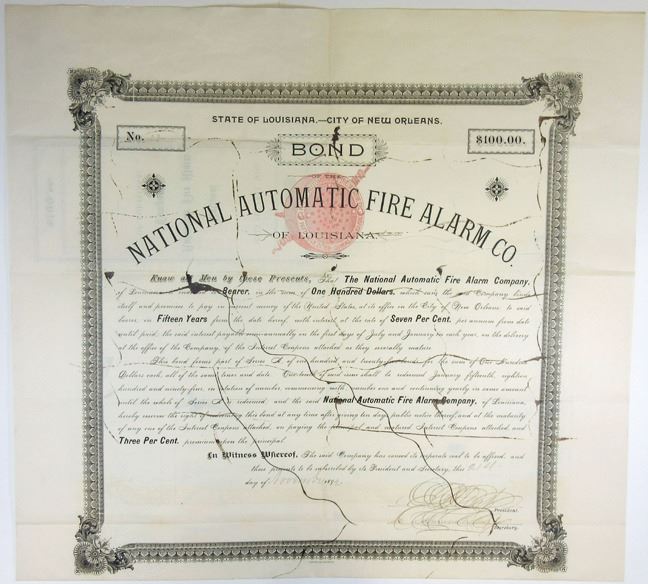 STATE OF LOUISIANA.—CITY OF NEW ORLEANS.
No.
$100.00.
BOND
OF THE
NATIONAL AUTOMATIC FIRE ALARM CO.
OF LOUISIANA.
Know all Men by these Presents, The National Automatic Fire Alarm Company,
of Bearer, in the sum of One Hundred Dollars, which sum the said Company binds
itself and promises to pay in current money of the United States, at its office in the City of New Orleans to said
bearer in Fifteen Years from the date hereof, with interest at the rate of Seven Per Cent. per annum from date
until paid, the said interest payable semi-annually in the first days of July and January in each year, on the delivery
at the office of the Company, of the Interest Coupons attached as they severally mature.
This bond forms part of Series A, of one hundred and twenty bonds for the sum of One Hundred
Dollars each, all of the same tenor and date. One bond of said series shall be redeemed January fifteenth, eighteen
hundred and ninety-five, in rotation of number commencing with number one and continuing yearly in same amount
until the whole of Series A is redeemed, and the said National Automatic Fire Alarm Company, of Louisiana,
hereby reserve the right of redeeming this bond at any time after giving ten days public notice hereof, and at the maturity
of any one of the Interest Coupons attached, on paying the principal and matured Interest Coupons attached, and
Three Per Cent. premium upon the principal.
In Witness Whereof, The said Company has caused its corporate seal to be affixed, and
these presents to be subscribed by its President and Secretary, this
day of November
President.
Secretary.